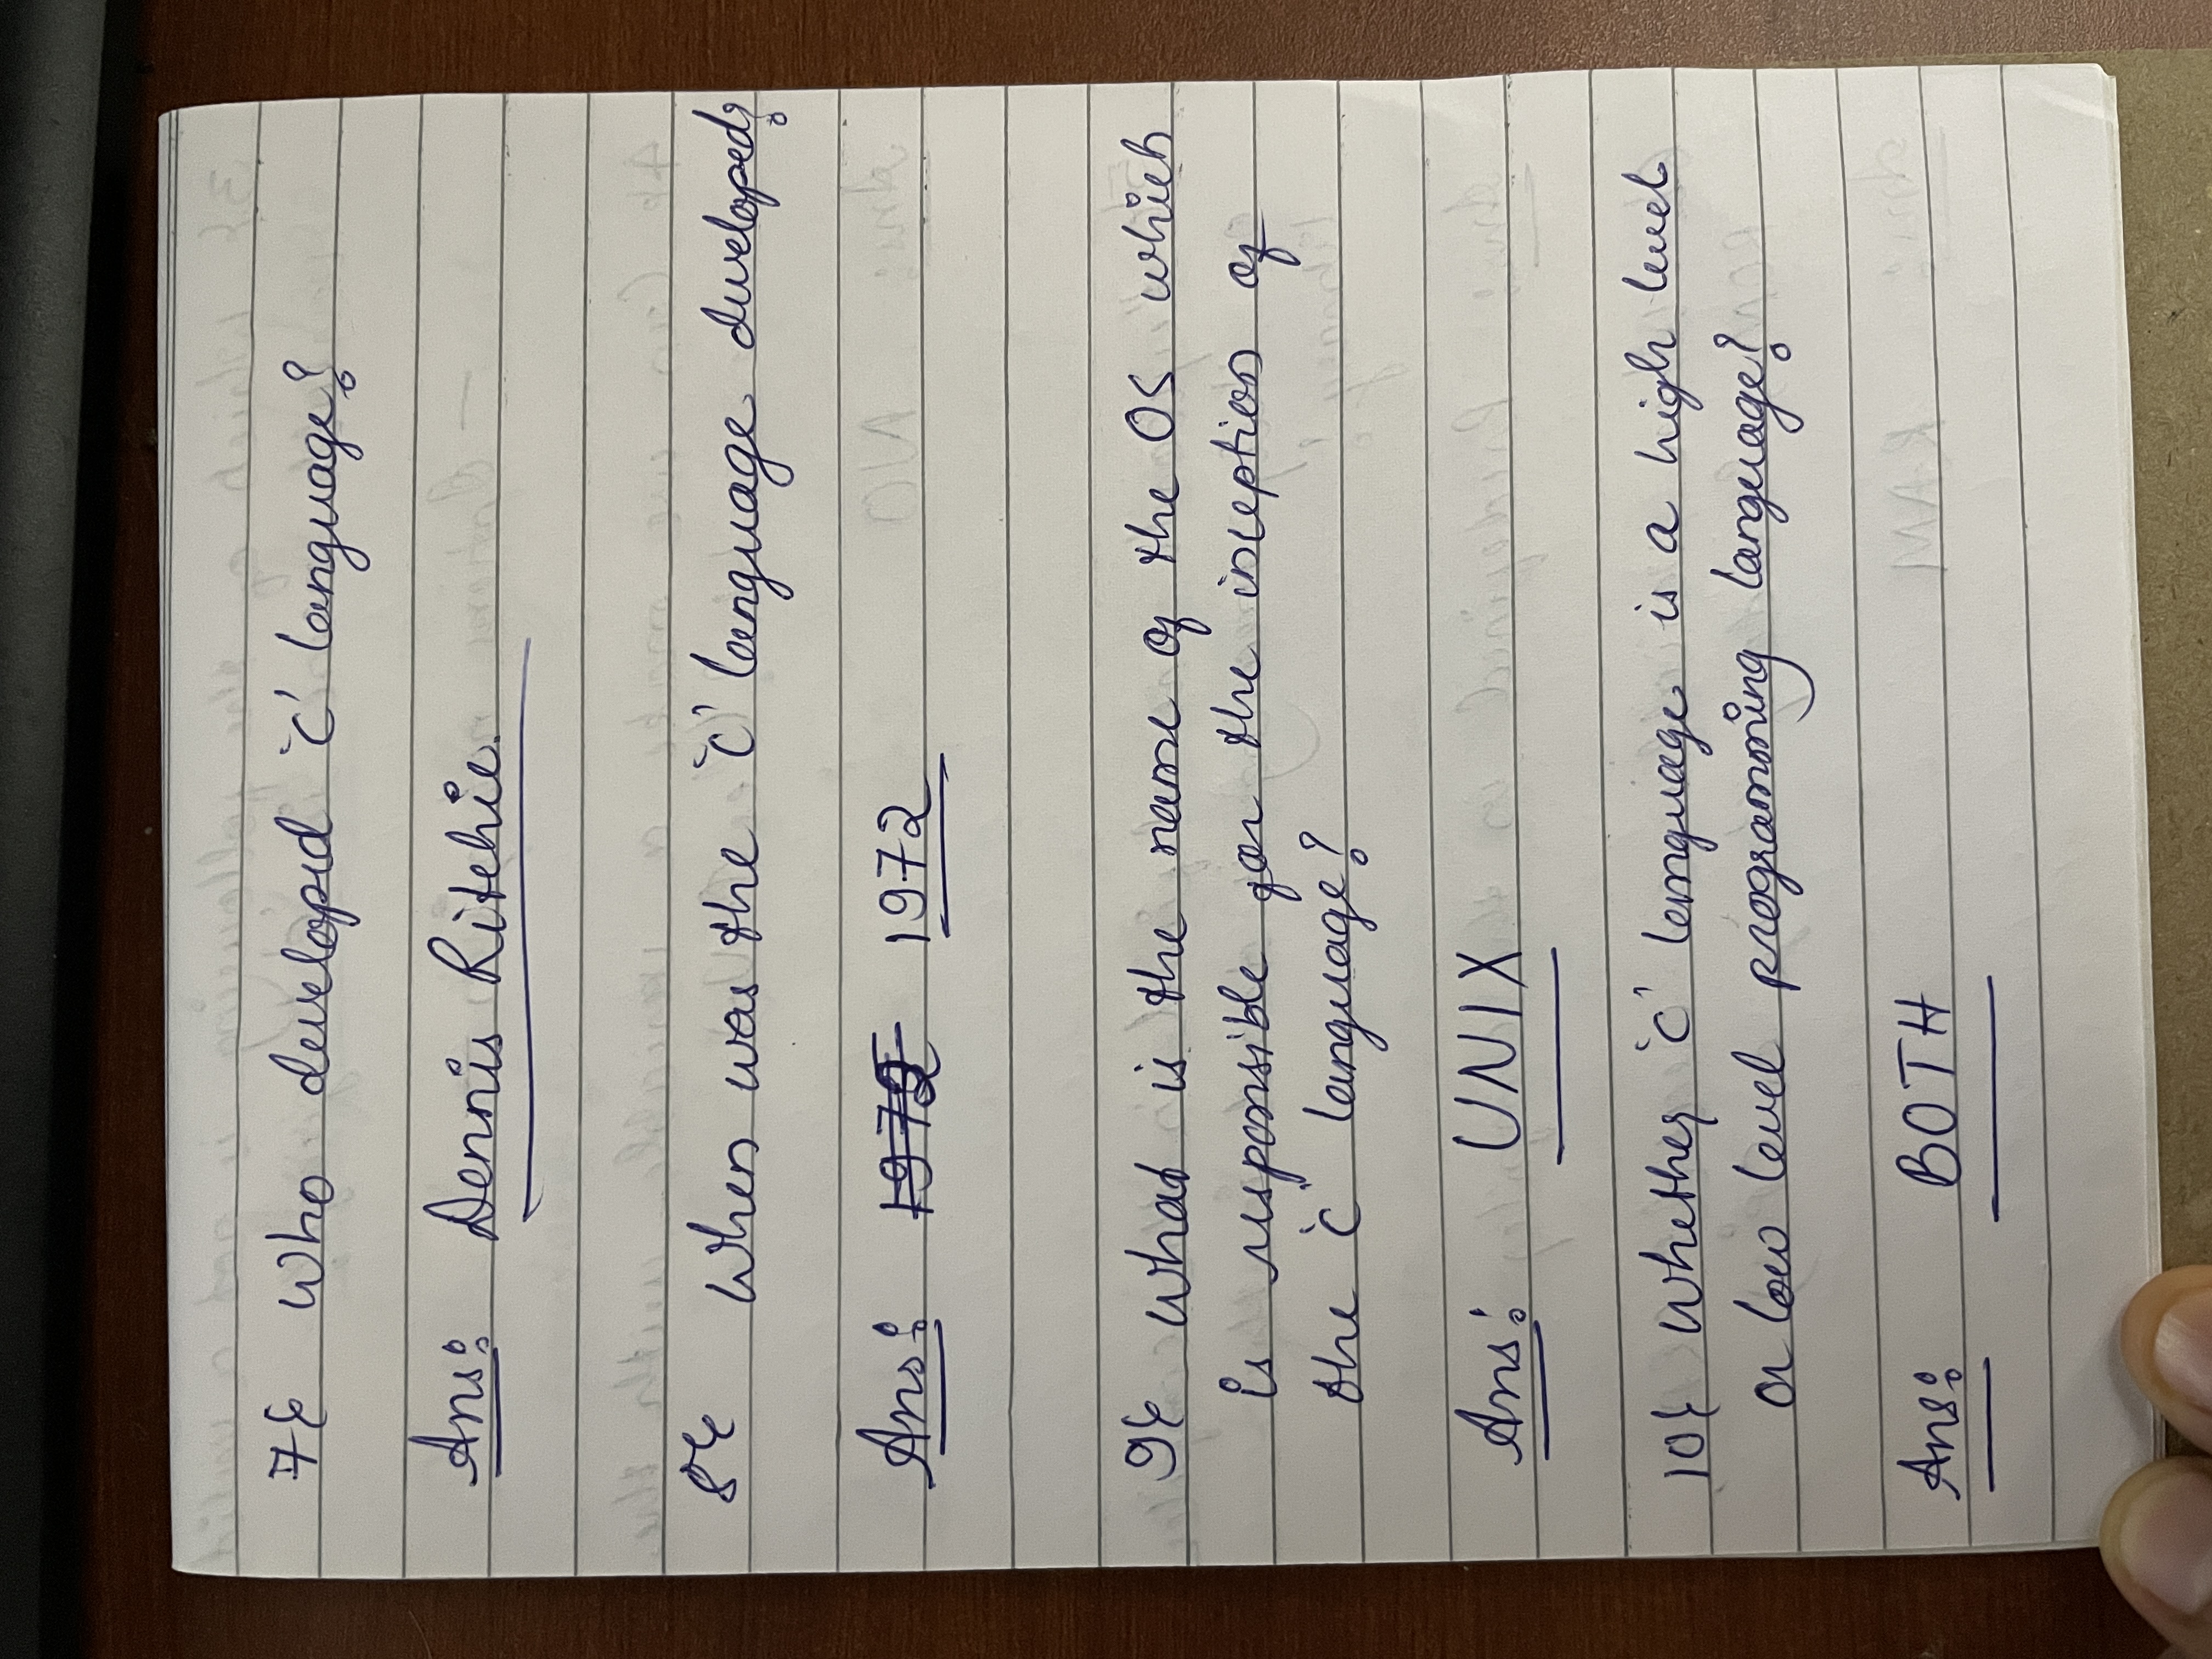 7} Who developed 'C' language?
Ans: Dennis Ritchie.
8} When was the 'C' language developed?
Ans: 1972 1972
9} What is the name of the OS which
is responsible for the inception of
the 'C' language?
Ans: UNIX
10} Whether 'C' language is a high level
or low level programming language?
Ans: BOTH